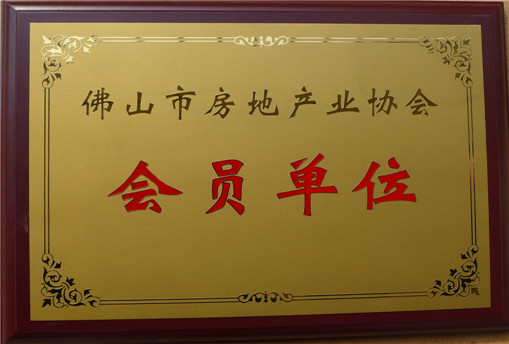 佛山市房地产业协会
会员单位